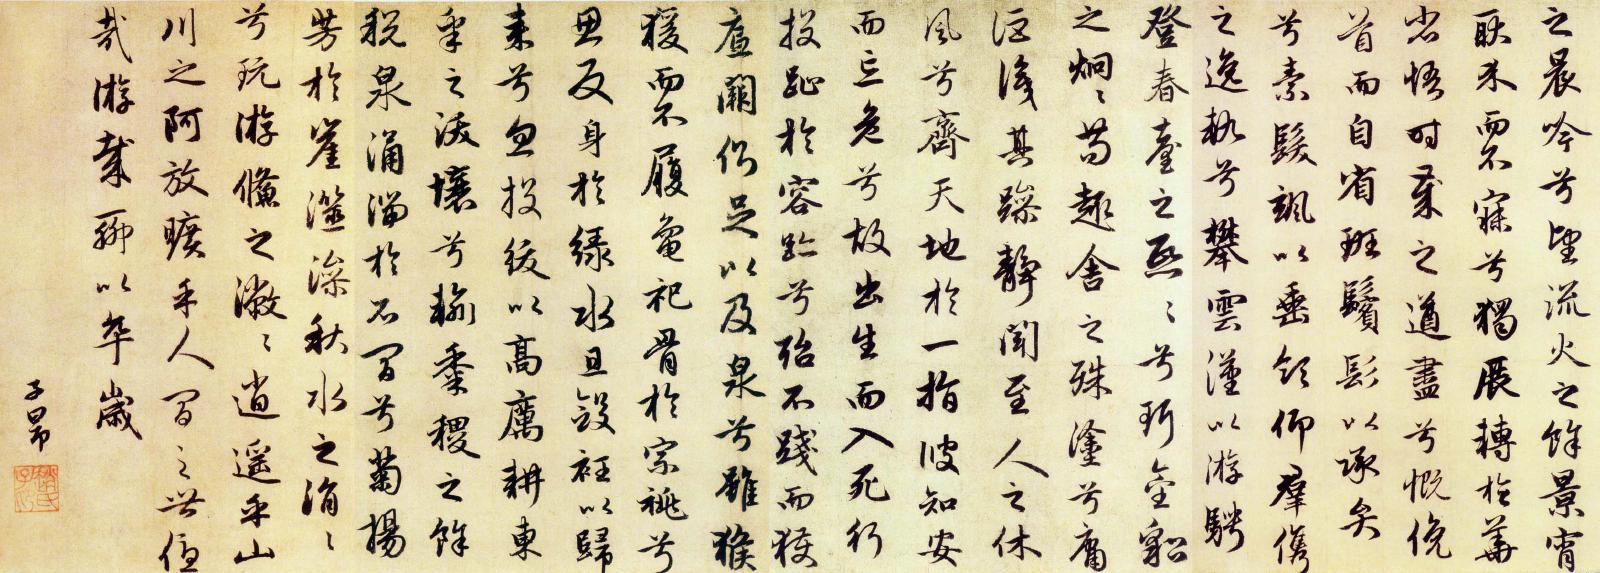 之晨吟兮望流火之餘景宵
耿介而不寐兮獨展轉於華
省悟时歲之遒盡兮慨俛
首而自省斑鬢髟以承弁
兮素髮颯以垂領仰群儁
之逸軌兮攀雲漢以游騁
登春臺之熙〻兮珥金貂
之炯〻苟趣舍之殊塗兮庸
詎識其躁靜聞至人之休
風兮齊天地於一指彼知安
而忘危兮故出生而入死行
投趾於容跡兮殆不踐而獲
底闕側足以及泉兮雖猴
猨而不履龜祀骨於宗祧兮
思反身於綠水且斂衽以歸
來兮忽投紱以高厲耕東
皋之沃壤兮輸黍稷之餘
稅泉涌湍於石間兮菊揚
芳於崖澨澡秋水之涓〻
兮玩游鯈之潎〻逍遥乎山
川之阿放曠乎人間之世優
哉游哉聊以卒歲
子昂
趙氏子昂